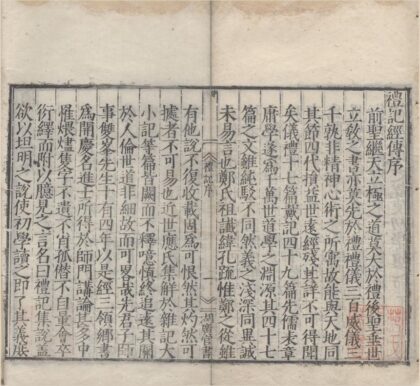 禮記經傳序
前聖繼天立極之道莫大於禮後聖垂世
立敎之書亦莫先於禮禮儀三百威儀三
千孰非精神心術之所寓故能與天地同
其節四代損益世遠經殘其詳不可得聞
矣儀禮十七篇戴記四十九篇先儒表章
庸學遂爲千萬世道學之淵源其四十七
篇之文雖純駁不同然義之淺深同異誠
未易言也鄭氏祖讖緯孔疏惟鄭之從雖
禮記序 一
有他說不復收載固爲可恨然其灼然可
據者不可易也近世應氏集解於雜記大
小記等篇皆闕而不釋噫慎終追遠其關
於人倫世道非細故而可畧哉先君子師
事雙峯先生十有四年以是經三領鄉書
爲開慶名進士所得於師門講論甚多中
罹煨燼隻字不遺不肖孤僭不自量會萃
衍繹而附以臆見之言名曰禮記集說蓋
欲以坦明之說使初學讀之即了其義庶